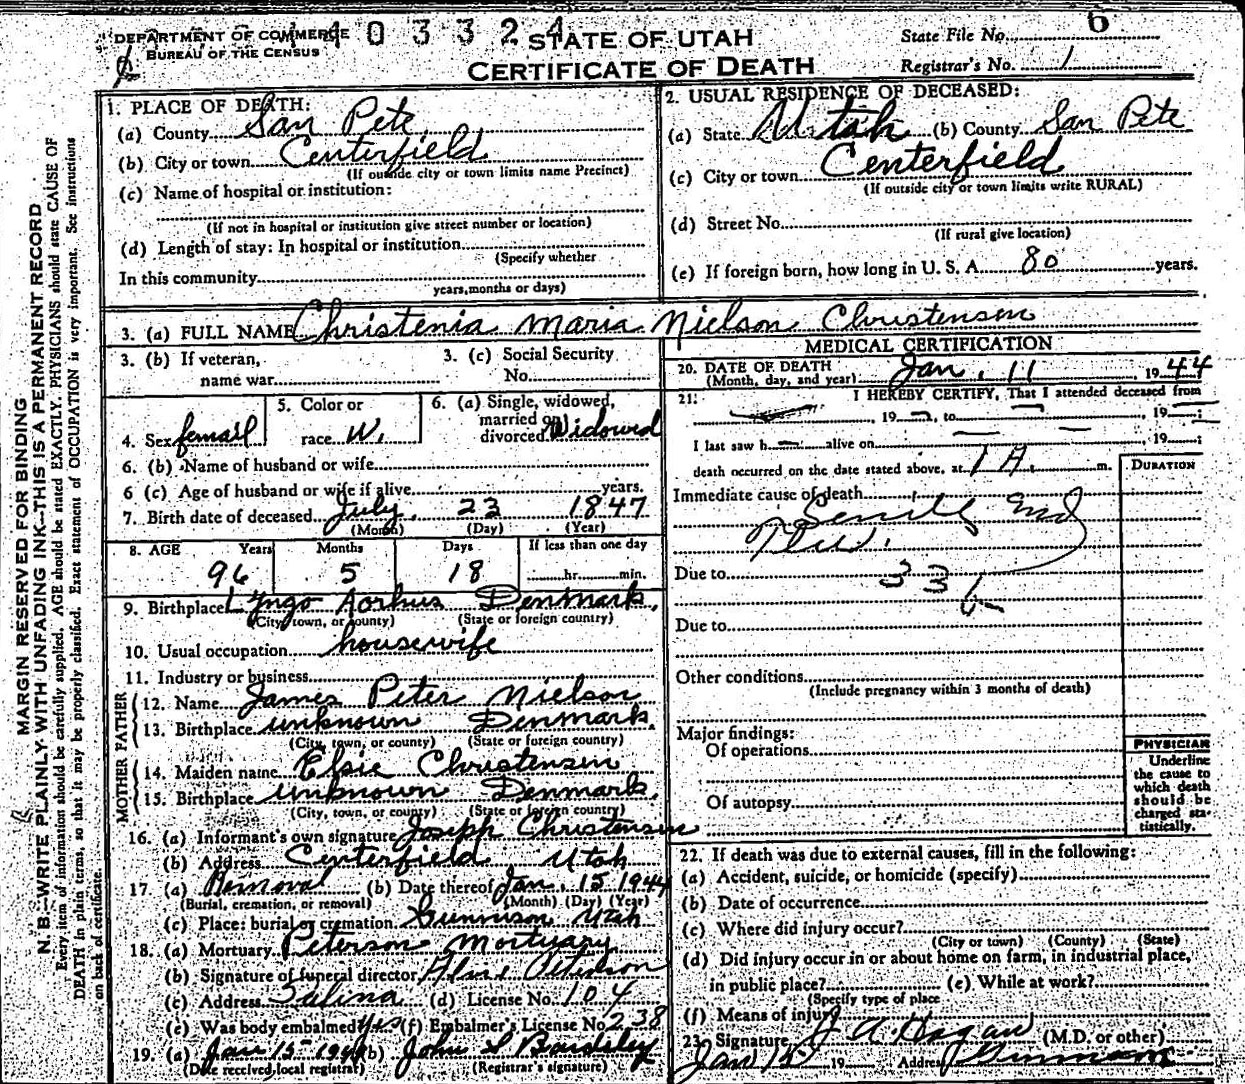 DEPARTMENT OF COMMERCE
BUREAU OF THE CENSUS
403324
STATE OF UTAH
CERTIFICATE OF DEATH
State File No. 6
Registrar's No. 1
MARGIN RESERVED FOR BINDING
N. B.—WRITE PLAINLY WITH UNFADING INK—THIS IS A PERMANENT RECORD
Every item of information should be carefully supplied. AGE should be stated EXACTLY. PHYSICIANS should state CAUSE OF
DEATH in plain terms, so that it may be properly classified. Exact statement of OCCUPATION is very important. See instructions
on back of certificate.
1. PLACE OF DEATH:
(a) County San Pete
(b) City or town Centerfield
(If outside city or town limits name Precinct)
(c) Name of hospital or institution:
(If not in hospital or institution give street number or location)
(d) Length of stay: In hospital or institution
(Specify whether
In this community
years, months or days)
2. USUAL RESIDENCE OF DECEASED:
(a) State Utah (b) County San Pete
(c) City or town Centerfield
(If outside city or town limits write RURAL)
(d) Street No.
(If rural give location)
(e) If foreign born, how long in U. S. A. 80 years.
3. (a) FULL NAME Christenia Maria Nielson Christenson
3. (b) If veteran,
name war
3. (c) Social Security
No.
4. Sex femail
5. Color or
race W.
6. (a) Single, widowed,
married or
divorced Widowed
6. (b) Name of husband or wife
6 (c) Age of husband or wife if alive years.
7. Birth date of deceased July 23 1847
(Month) (Day) (Year)
8. AGE Years Months Days If less than one day
96 5 18 hr. min.
9. Birthplace Lyngo Aorhus Denmark.
(City, town, or county) (State or foreign country)
10. Usual occupation housewife
11. Industry or business
FATHER
12. Name James Peter Nielson
13. Birthplace unknown Denmark.
(City, town, or county) (State or foreign country)
MOTHER
14. Maiden name Elsie Christensen
15. Birthplace unknown Denmark.
(City, town, or county) (State or foreign country)
16. (a) Informant's own signature Joseph Christensen
(b) Address Centerfield, Utah
17. (a) Removal (b) Date thereof Jan. 15 1944
(Burial, cremation, or removal) (Month) (Day) (Year)
(c) Place: burial or cremation Gunnison Utah
18. (a) Mortuary Peterson Mortuary
(b) Signature of funeral director Peterson
(c) Address Salina (d) License No. 104
(e) Was body embalmed? yes (f) Embalmer's License No. 238
19. (a) Jan 15 1944 (b) John S Bardsley
(Date received local registrar) (Registrar's signature)
MEDICAL CERTIFICATION
20. DATE OF DEATH
(Month, day, and year) Jan. 11, 1944
21. I HEREBY CERTIFY, That I attended deceased from
, 19 , to , 19 ;
I last saw h alive on , 19 ;
death occurred on the date stated above, at 1 A. m.
DURATION
Immediate cause of death
Senile
Due to 33
Due to
Other conditions
(Include pregnancy within 3 months of death)
Major findings:
Of operations
Of autopsy
PHYSICIAN
Underline
the cause to
which death
should be
charged sta-
tistically.
22. If death was due to external causes, fill in the following:
(a) Accident, suicide, or homicide (specify)
(b) Date of occurrence
(c) Where did injury occur?
(City or town) (County) (State)
(d) Did injury occur in or about home on farm, in industrial place,
in public place? (e) While at work?
(Specify type of place
(f) Means of injury
23. Signature J A Hagan (M.D. or other)
Jan 15 19 Address Gunnison